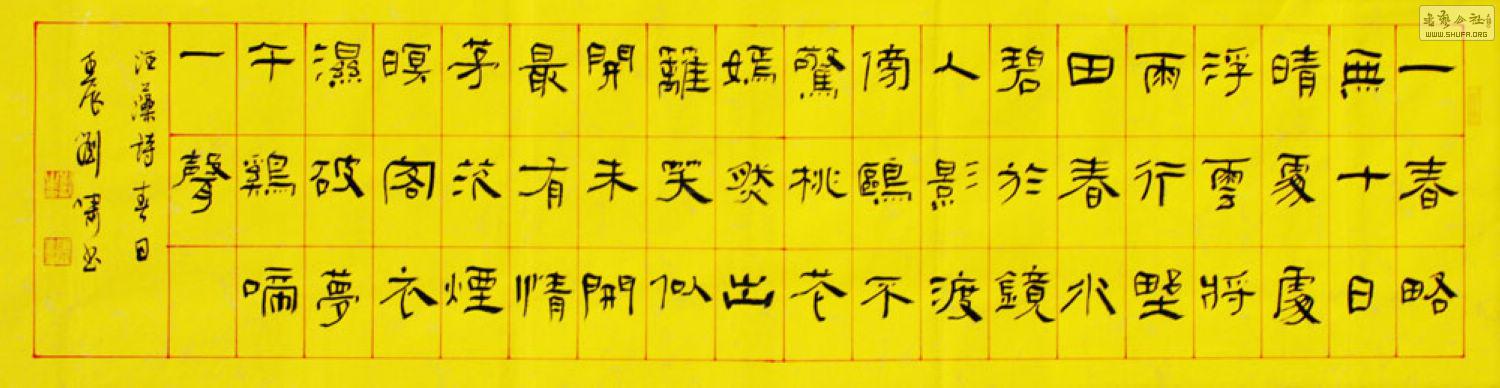 一春略
無十日
晴處處
浮雲將
雨行野
田春水
碧於鏡
人影渡
傍鷗不
驚桃花
嫣然出
籬笑似
開未開
最有情
茅茨煙
暝客衣
濕破夢
午鷄啼
一聲
汪藻詩春日
劉書
WWW.SHUFA.ORG